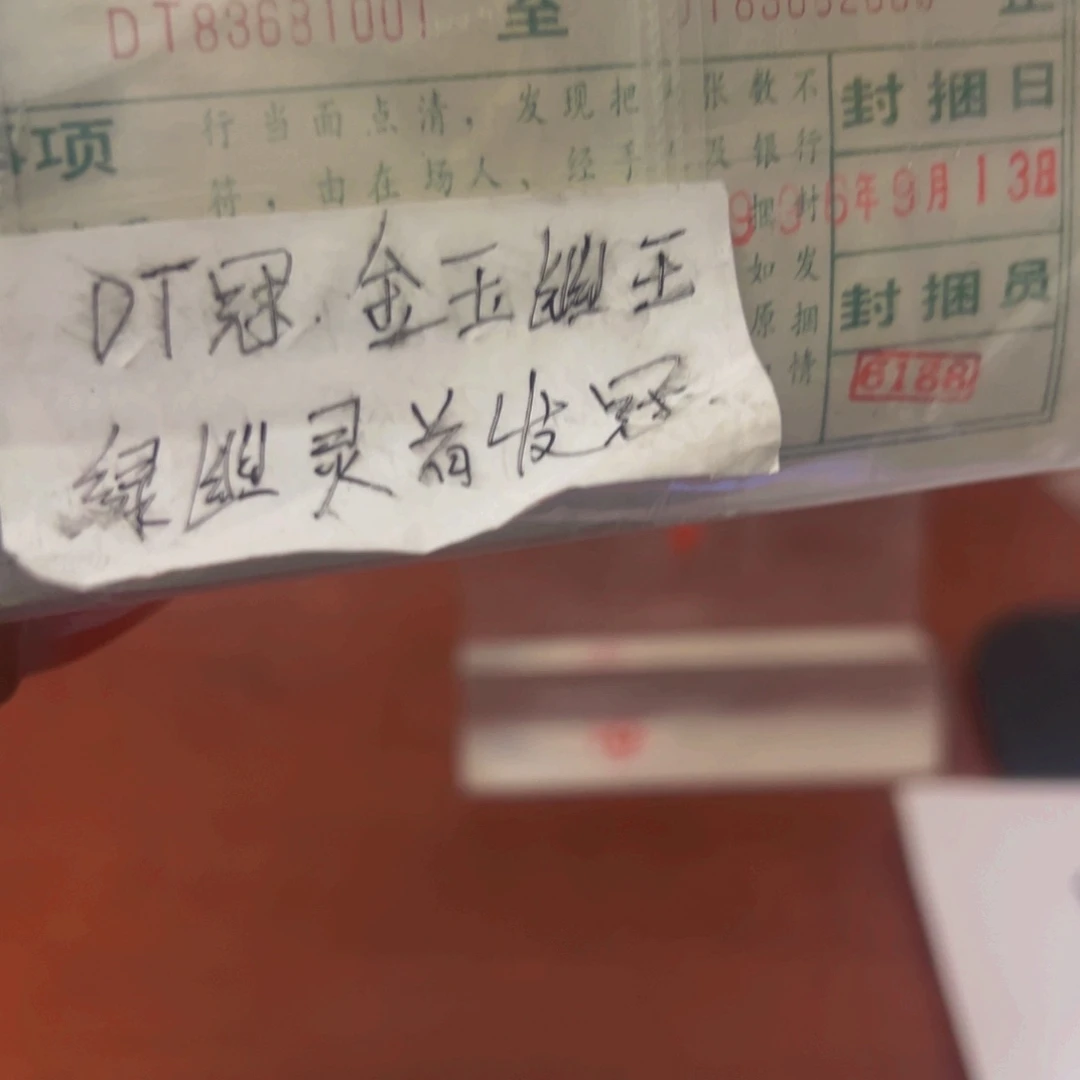 DT83631001 至
事项 行当面点清，发现把 张数不
符，由在场人、经手 及银行
捆封
如发
原捆
情
封捆日
6年9月13日
封捆员
6188
DT冠.金玉幽王
绿幽灵首发冠